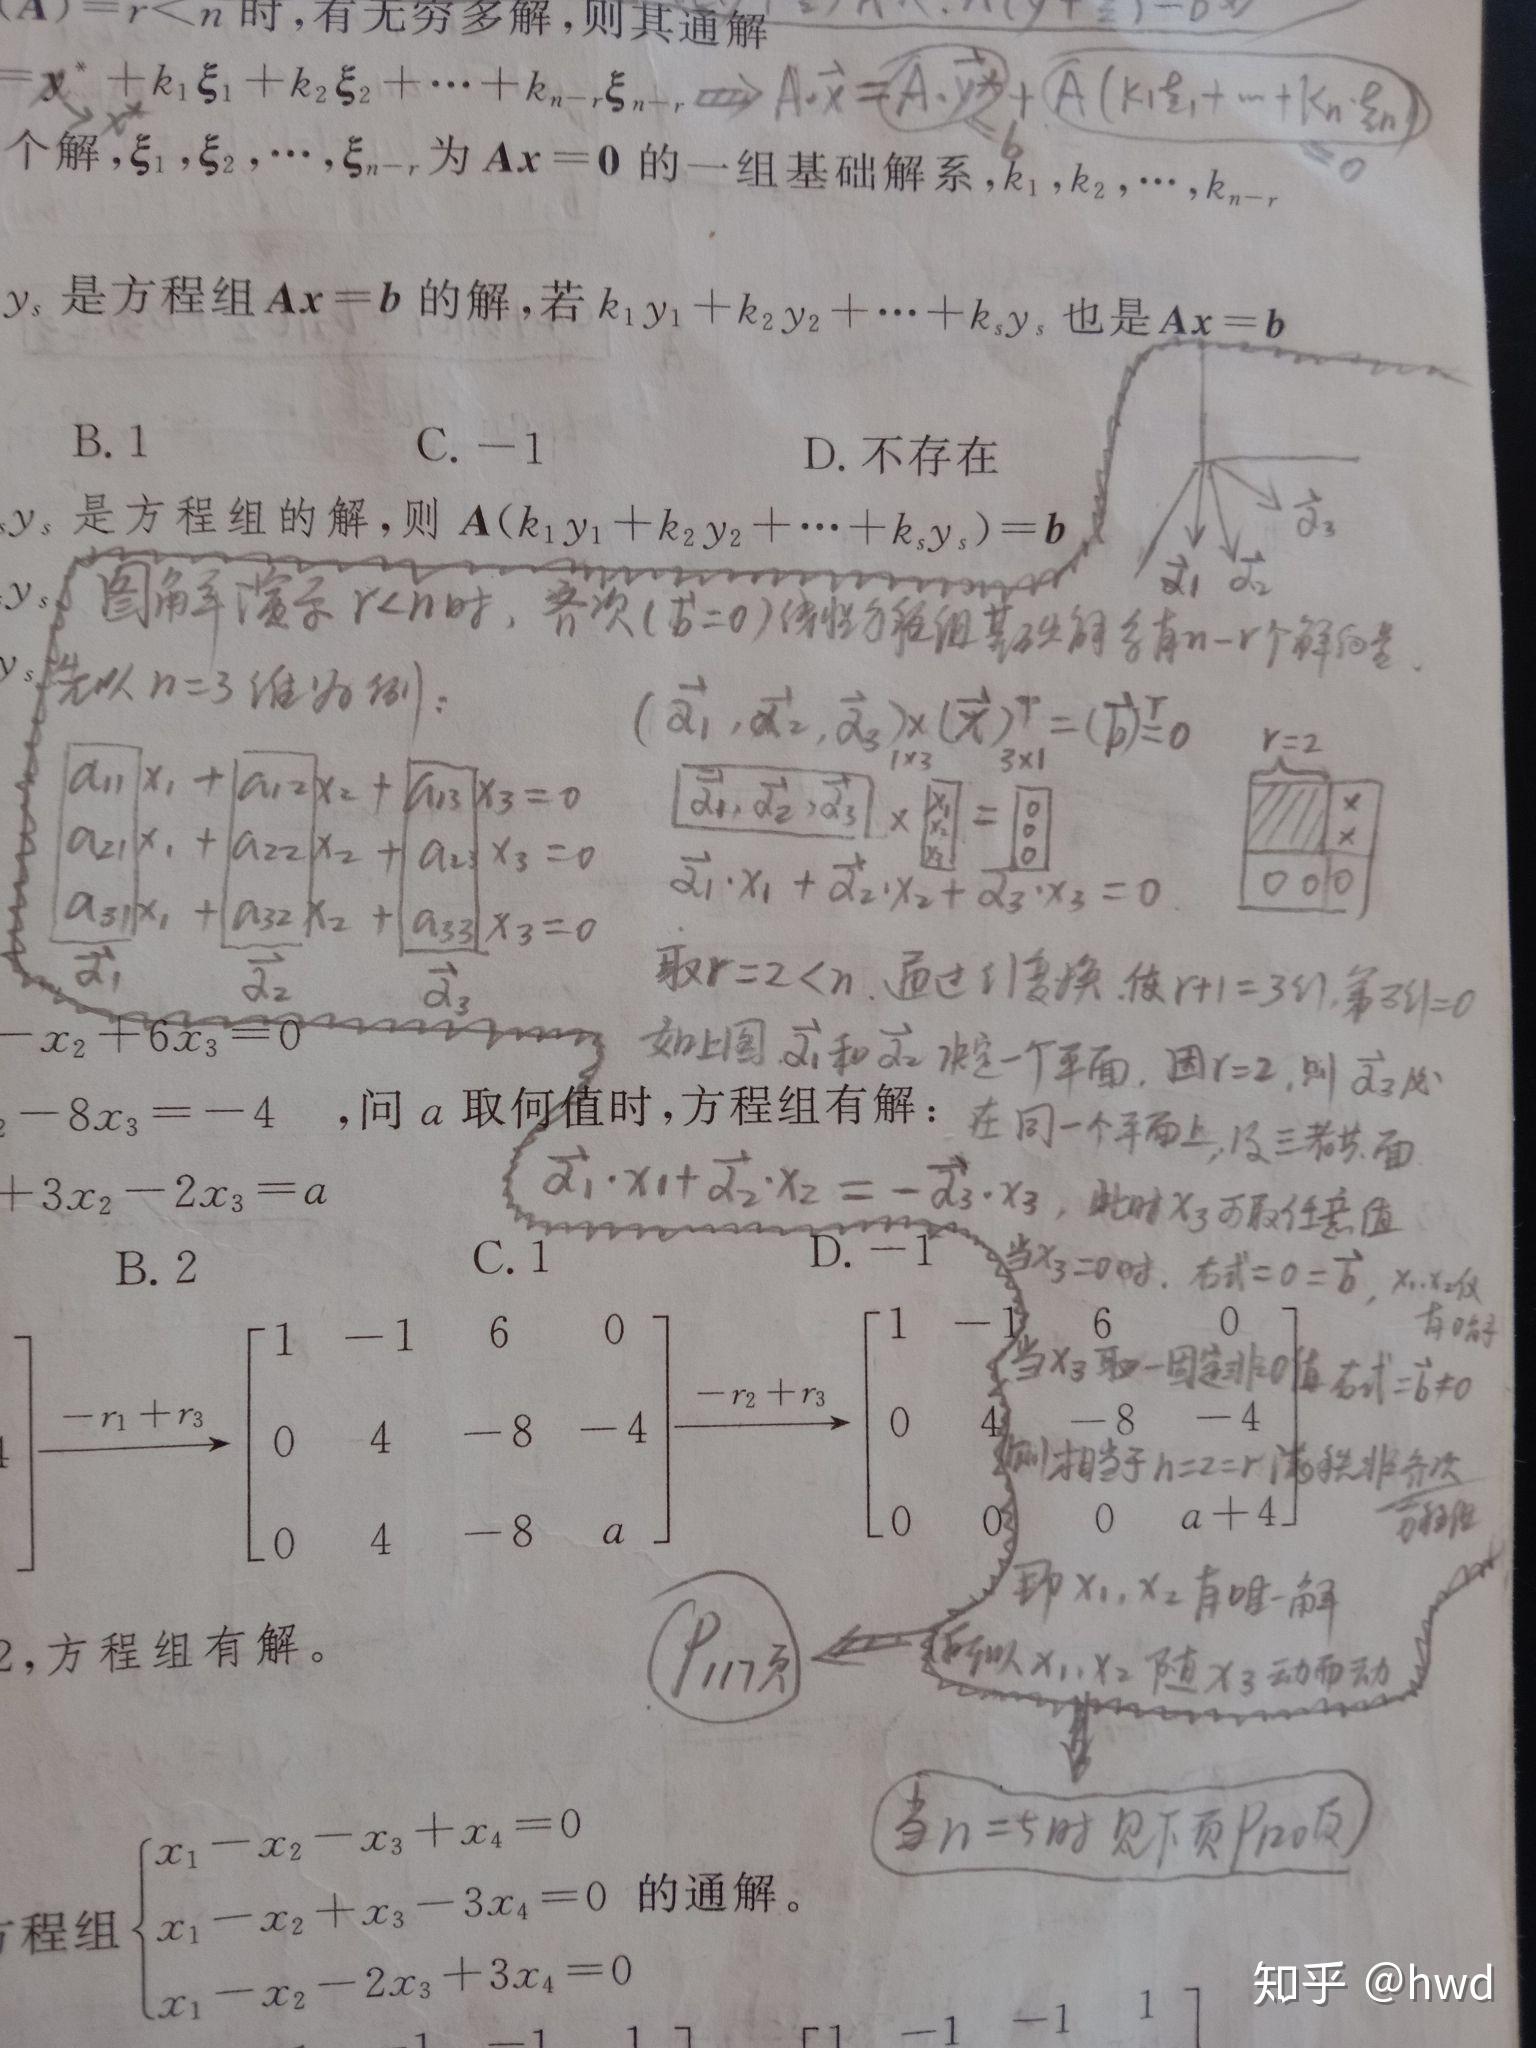 (A)=r<n时,有无穷多解,则其通解
=x* +k₁ξ₁+k₂ξ₂+…+kₙ₋ᵣξₙ₋ᵣ ⇒ A·x⃗=A·y⃗*+A(k₁ξ₁+…+kₙ·ξₙ)
x* =b =0
个解,ξ₁,ξ₂,…,ξₙ₋ᵣ为Ax=0的一组基础解系,k₁,k₂,…,kₙ₋ᵣ
yₛ是方程组Ax=b的解,若k₁y₁+k₂y₂+…+kₛyₛ也是Ax=b
B. 1 C. −1 D. 不存在
ₛyₛ是方程组的解,则A(k₁y₁+k₂y₂+…+kₛyₛ)=b
α⃗₃
α⃗₁ α⃗₂
图解演示r<n时,齐次(b⃗=0)线性方程组基础解系有n−r个解向量.
先以n=3维为例:
(α⃗₁,α⃗₂,α⃗₃)×(x⃗)ᵀ=(b⃗)ᵀ=0
1×3 3×1
r=2
a₁₁x₁+a₁₂x₂+a₁₃x₃=0
a₂₁x₁+a₂₂x₂+a₂₃x₃=0
a₃₁x₁+a₃₂x₂+a₃₃x₃=0
α⃗₁ α⃗₂ α⃗₃
α⃗₁,α⃗₂,α⃗₃ × x₁ x₂ x₃ = 0 0 0
× × 0 0 0
α⃗₁·x₁+α⃗₂·x₂+α⃗₃·x₃=0
取r=2<n.通过列变换.使r+1=3列,第3列=0
如上图.α⃗₁和α⃗₂决定一个平面.因r=2,则α⃗₃必
在同一个平面上,及三者共面
α⃗₁·x₁+α⃗₂·x₂=−α⃗₃·x₃,此时x₃可取任意值
当x₃=0时.右式=0=b⃗,x₁.x₂仅
有0解
当x₃取一固定非0值 右式=b⃗≠0
则相当于n=2=r 非齐次
方程组
即x₁,x₂有唯一解
所以x₁,x₂随x₃动而动
P117页
当n=5时见下页P120页
−x₂+6x₃=0
₂−8x₃=−4 ,问a取何值时,方程组有解:
+3x₂−2x₃=a
B. 2 C. 1 D. −1
−r₁+r₃ 1 −1 6 0 −r₂+r₃ 1 −1 6 0
0 4 −8 −4 0 4 −8 −4
0 4 −8 a 0 0 0 a+4
2,方程组有解。
x₁−x₂−x₃+x₄=0
方程组 x₁−x₂+x₃−3x₄=0 的通解。
x₁−x₂−2x₃+3x₄=0
1 −1 −1 1
知乎 @hwd